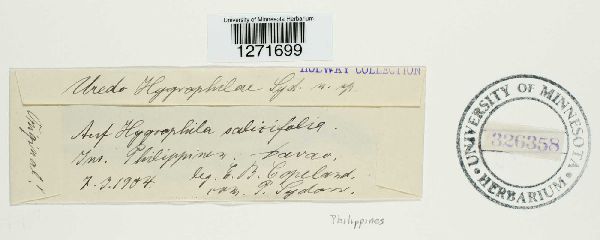 University of Minnesota Herbarium
1271699
HOLWAY COLLECTION
Uredo Hygrophilae Syd. n. sp.
Auf Hygrophila salicifolia.
Ins. Philippinen, Davao,
7.3.1904. leg. E. B. Copeland.
com. P. Sydow.
Original!
UNIVERSITY OF MINNESOTA
HERBARIUM
326358
Philippines